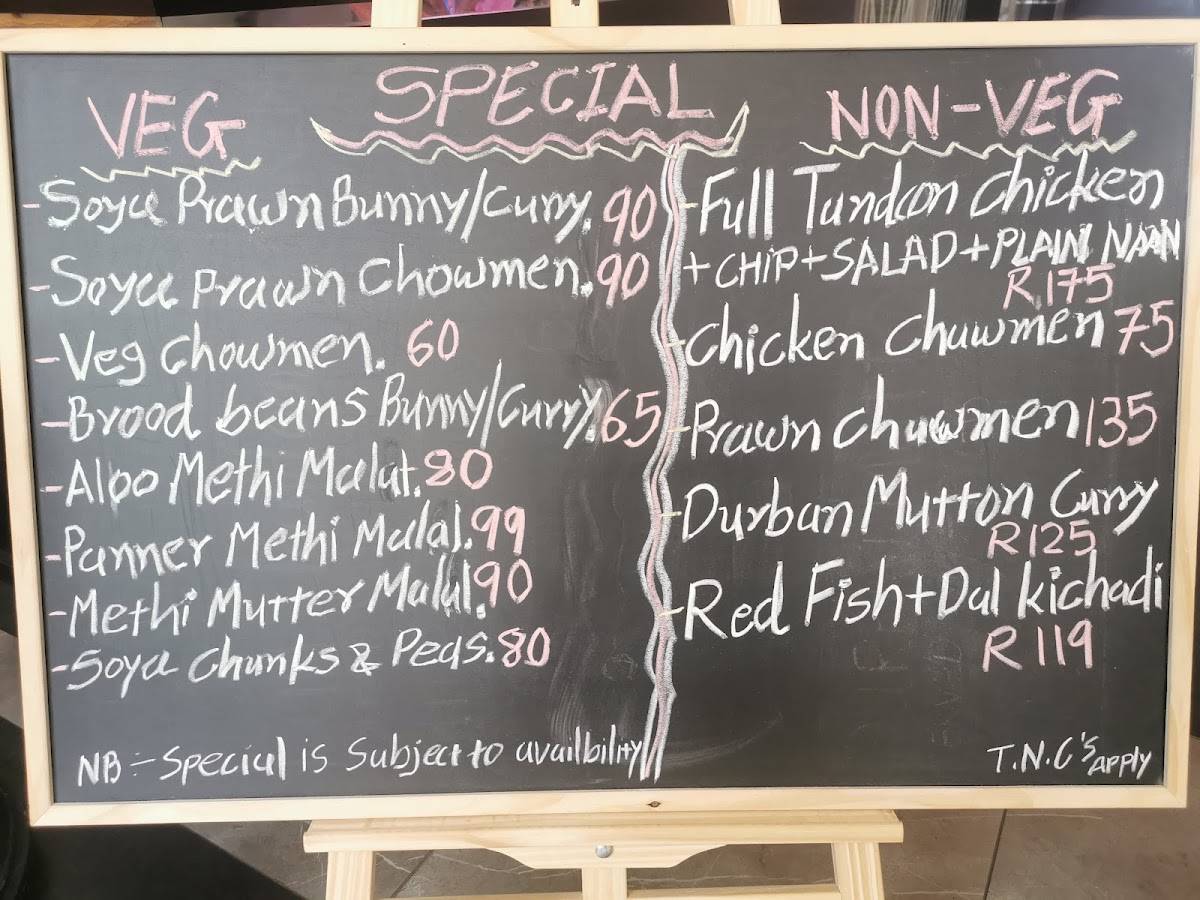 SPECIAL
VEG
-Soya Prawn Bunny/Curry. 90
-Soya Prawn Chowmen. 90
-Veg Chowmen. 60
-Brood beans Bunny/Curry. 65
-Aloo Methi Malai. 80
-Panner Methi Malai. 99
-Methi Mutter Malai. 90
-Soya Chunks & Peas. 80
NB :- Special is Subject to availbility
NON-VEG
-Full Tundoon Chicken
+ CHIP + SALAD + PLAIN NAAN
R 175
-Chicken Chuwmen 75
-Prawn Chuwmen 135
-Durban Mutton Curry
R 125
-Red Fish + Dal kichadi
R 119
T.N.C's APPLY